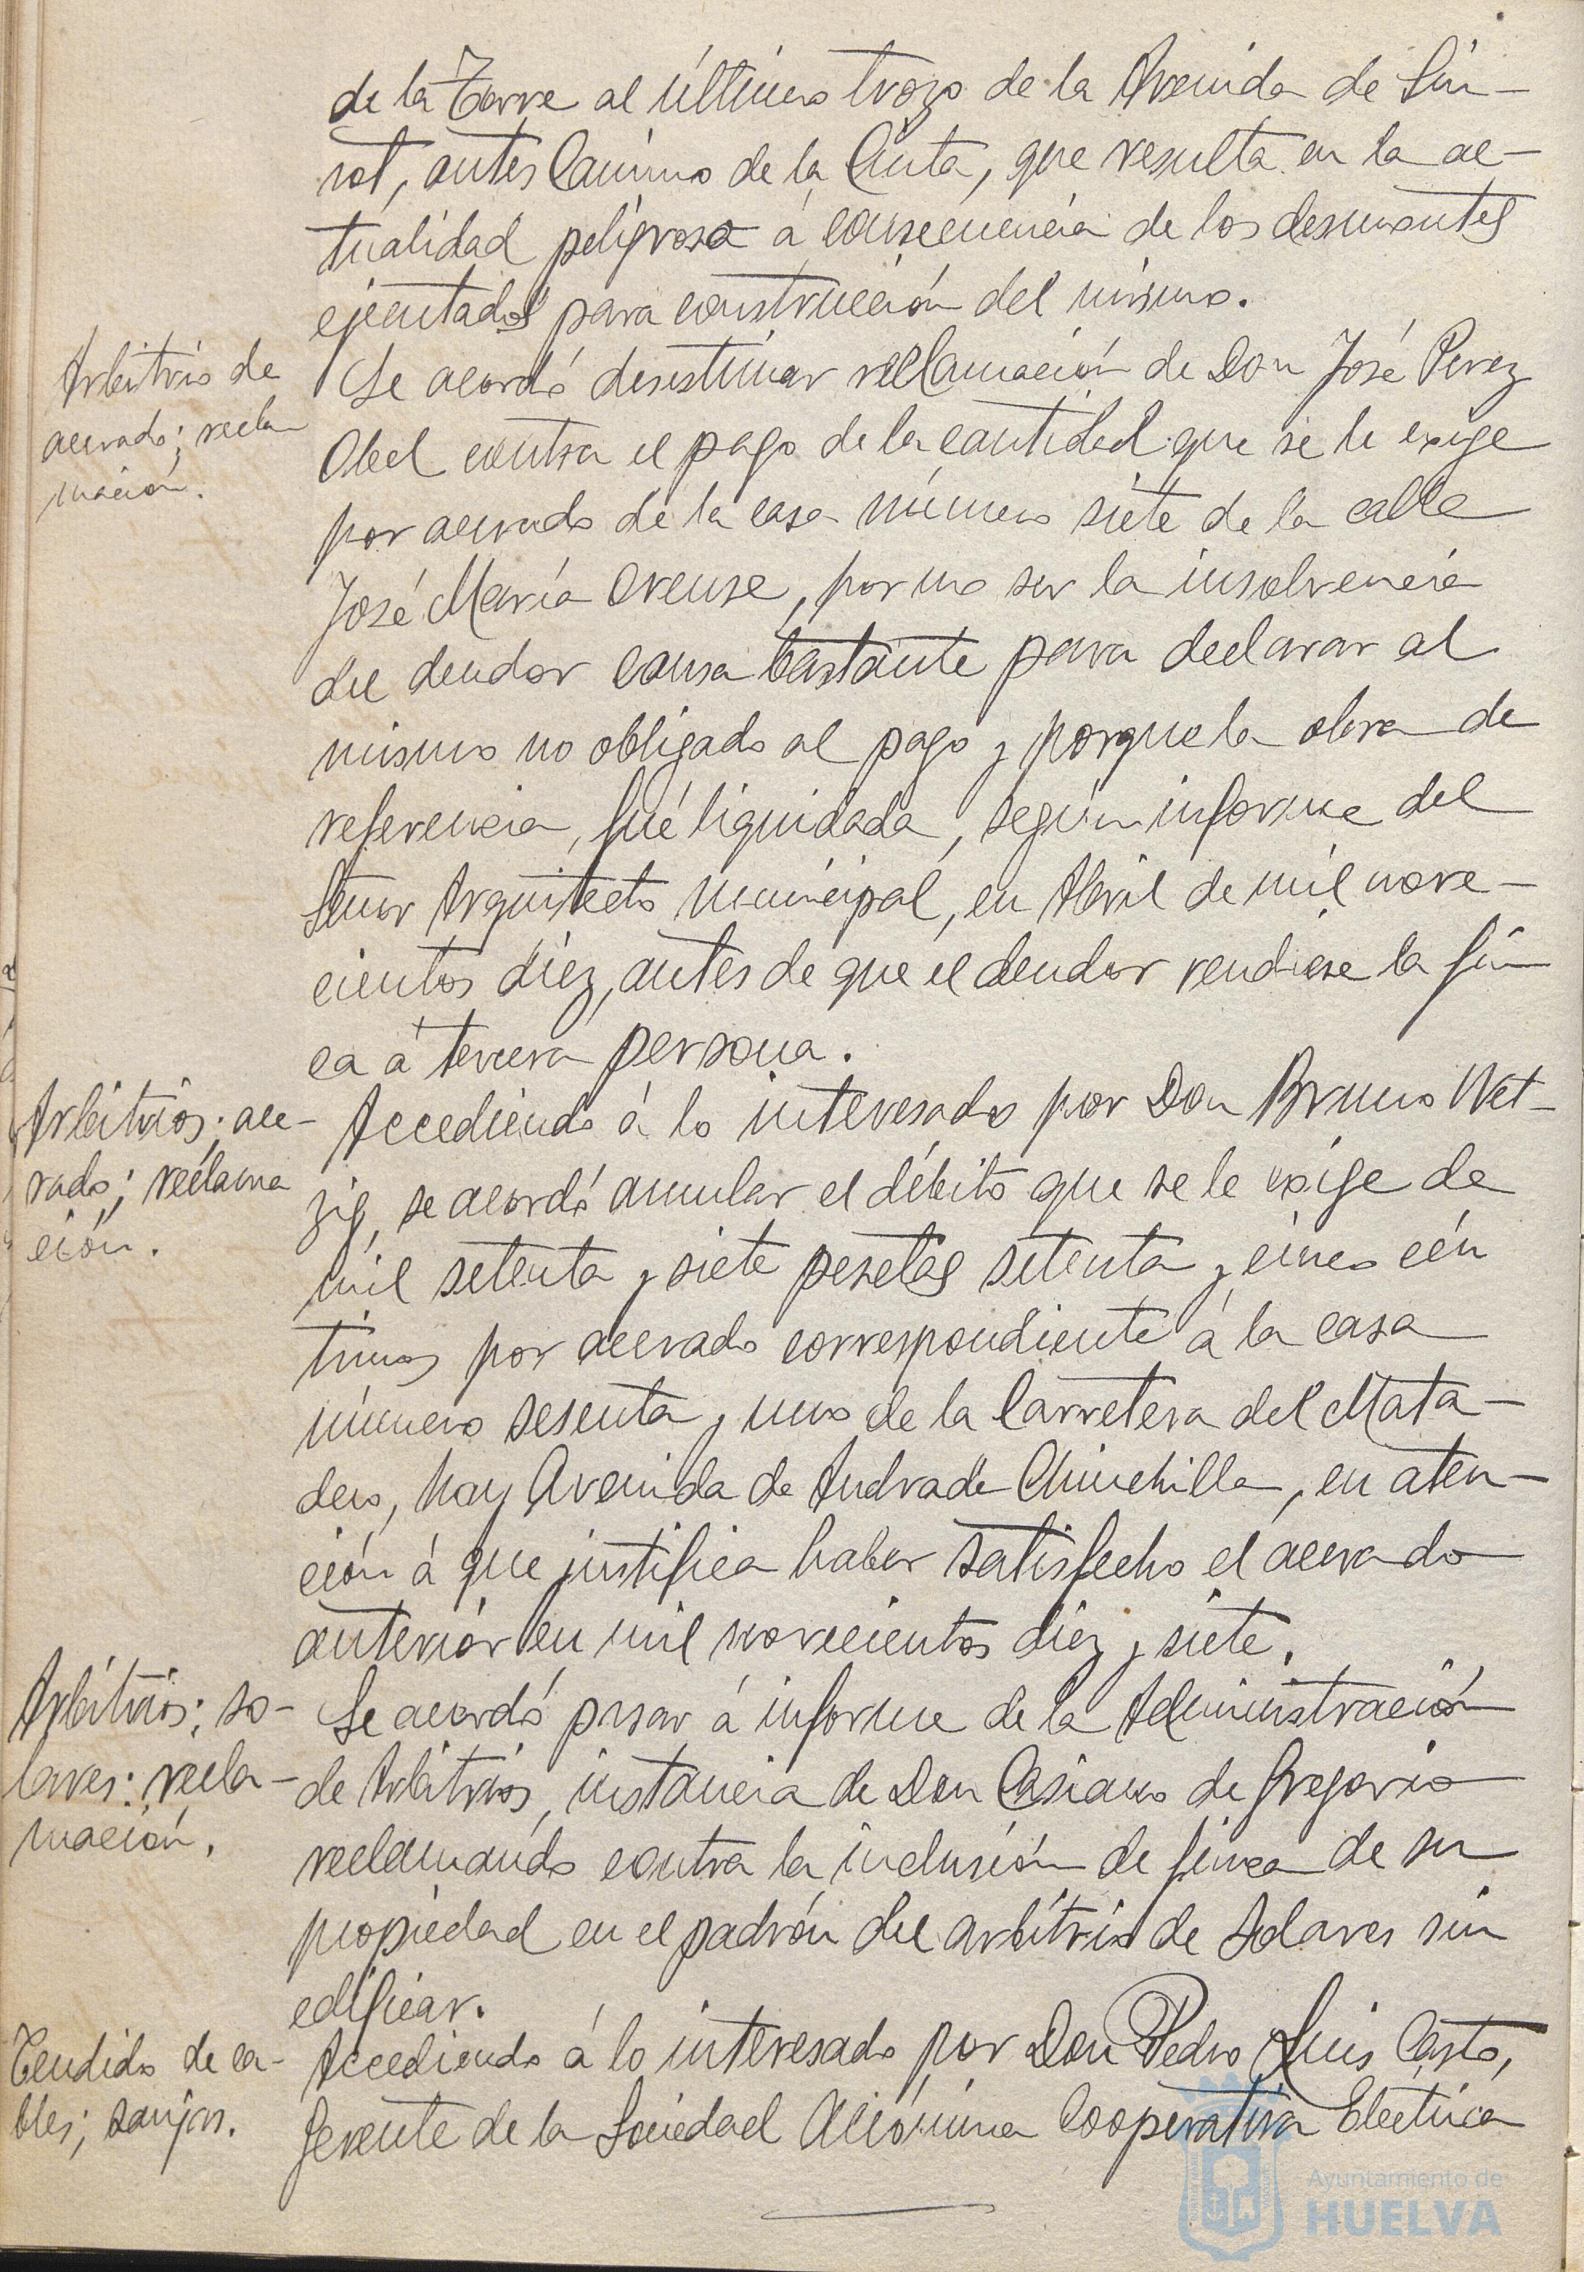 de la Torre al último trozo de la Avenida de Sun-
rot, antes Camino de la Cinta, que resulta en la ac-
tualidad peligrosa á consecuencia de los desmontes
ejecutados para construcción del mismo.
Arbitrio de
acerado; recla
mación.
Se acordó desestimar reclamación de Don José Perez
Abel contra el pago de la cantidad que se le exige
por acerado de la casa número siete de la calle
José María Orense, por no ser la insolvencia
del deudor causa bastante para declarar al
mismo no obligado al pago y porque la obra de
referencia, fué liquidada, según informe del
Señor Arquitecto Municipal, en Abril de mil nove-
cientos diez, antes de que el deudor vendiese la fin
ca á tercera persona.
Arbitrios; ace-
rado; reclama
ción.
Accediendo á lo interesado por Don Bruno Wet-
zig, se acordó anular el débito que se le exige de
mil setenta y siete pesetas setenta y cinco cén
timos por acerado correspondiente á la casa
número sesenta y uno de la Carretera del Mata-
dero, hoy Avenida de Andrade Chinchilla, en aten-
ción á que justifica haber satisfecho el acerado
anterior en mil novecientos diez y siete.
Arbitrios; so-
lares; recla-
mación.
Se acordó pasar á informe de la Administración
de Arbitrios, instancia de Don Casiano de Gregorio
reclamando contra la inclusión de finca de su
propiedad en el padrón del arbitrio de Solares sin
edificar.
Tendido de ca-
bles; zanjas.
Accediendo á lo interesado por Don Pedro Luis Casto,
Gerente de la Sociedad Anónima Cooperativa Electrica
Ayuntamiento de
HUELVA